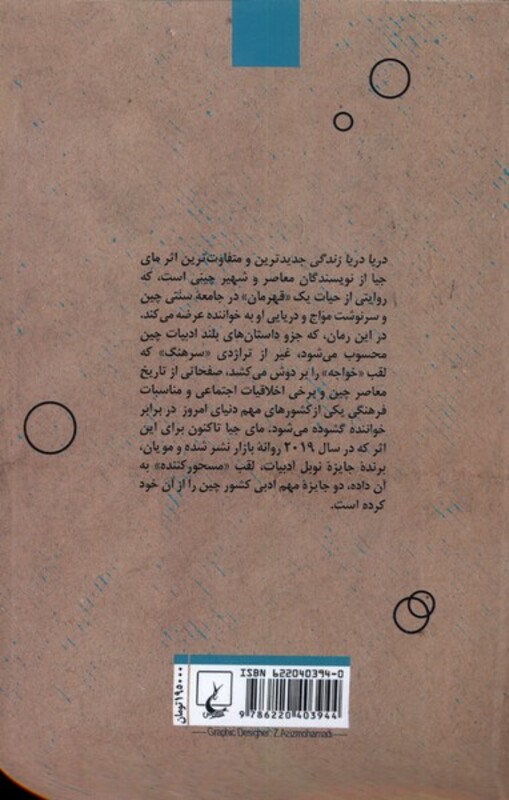 دریا دریا زندگی جدیدترین و متفاوت‌ترین اثر مای
جیا از نویسندگان معاصر و شهیر چینی است، که
روایتی از حیات یک «قهرمان» در جامعهٔ سنتی چین
و سرنوشت مواج و دریایی او به خواننده عرضه می‌کند.
در این رمان، که جزو داستان‌های بلند ادبیات چین
محسوب می‌شود، غیر از تراژدی «سرهنگ» که
لقب «خواجه» را بر دوش می‌کشد، صفحاتی از تاریخ
معاصر چین و برخی اخلاقیات اجتماعی و مناسبات
فرهنگی یکی از کشورهای مهم دنیای امروز در برابر
خواننده گشوده می‌شود. مای جیا تاکنون برای این
اثر که در سال ۲۰۱۹ روانهٔ بازار نشر شده و مویان،
برندهٔ جایزهٔ نوبل ادبیات، لقب «مسحورکننده» به
آن داده، دو جایزهٔ مهم ادبی کشور چین را از آن خود
کرده است.
ISBN 622040394-0
9 786220 403944
۱۹۵۰۰۰ تومان
ققنوس
Graphic Designer: Z.Azizmohamadi